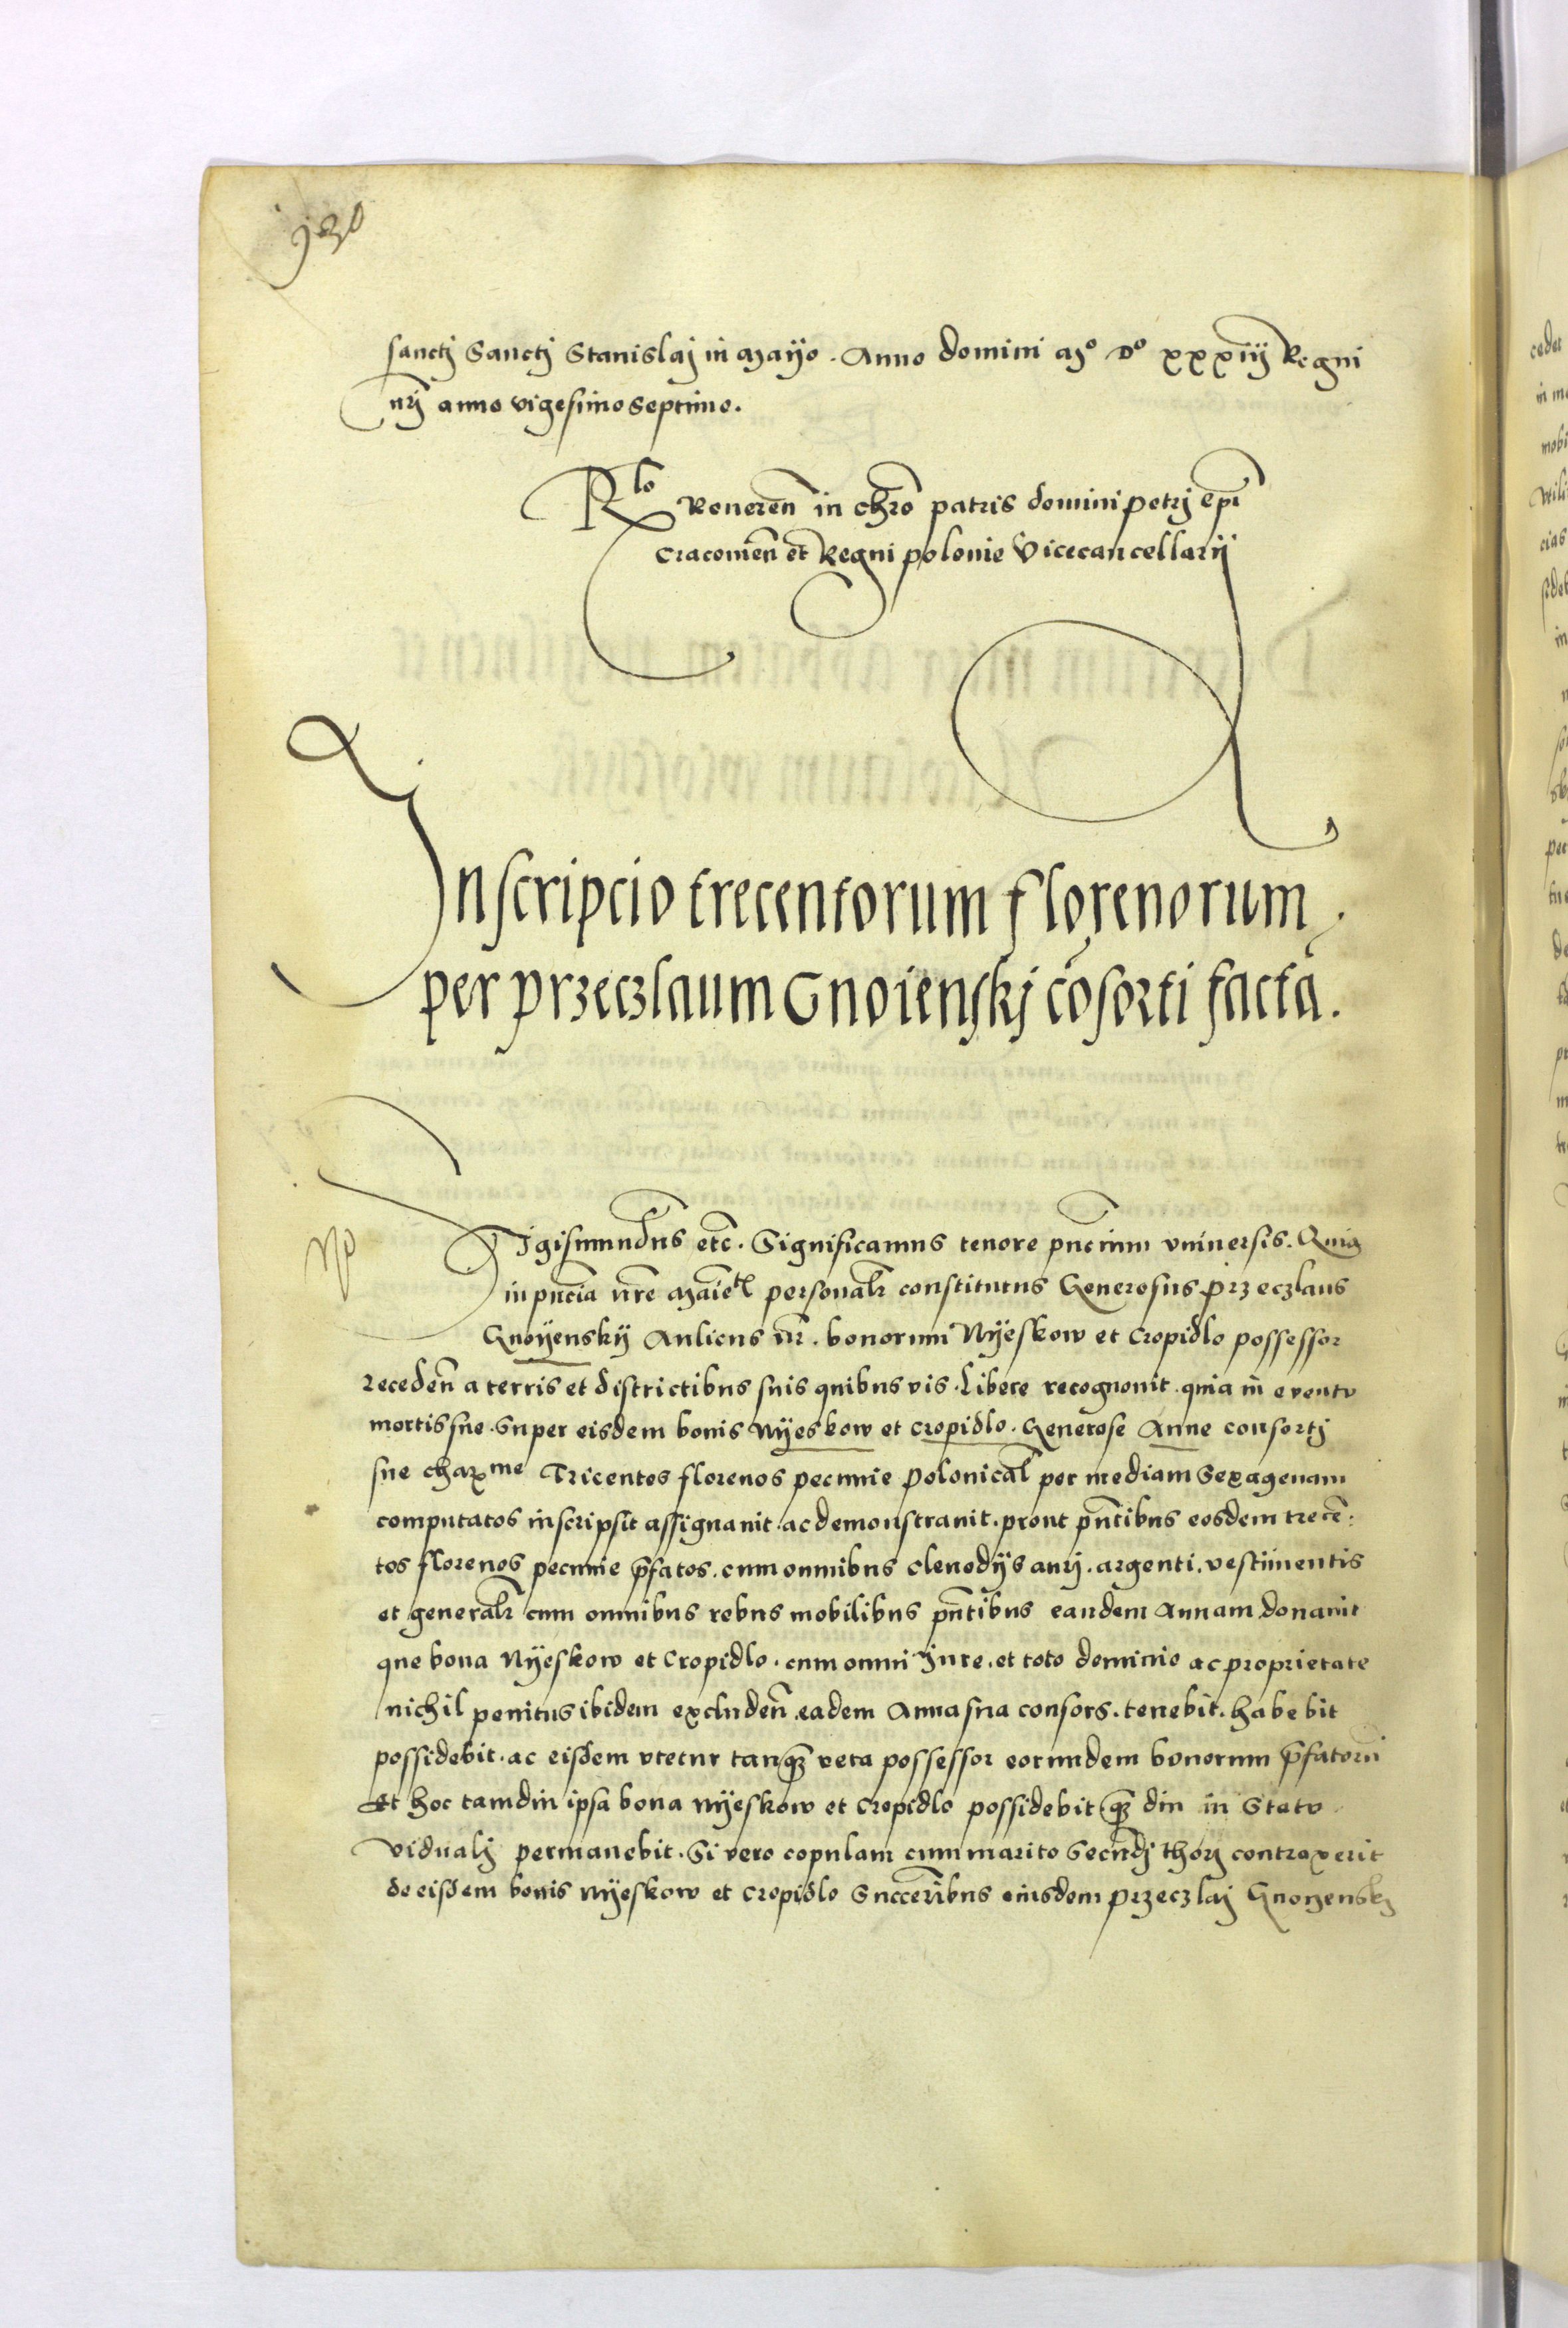 930
sanctj Sanctj Stanislaj in Mayo. Anno domini Mº Dº xxxiij Regni
nrj anno vigesimo Septimo.
Rlo Reueren in chro patris domini petrj epi
Cracouien et Regni polonie Vicecancellarij
Inscripcio trecentorum florenorum
per Przeczlaum Gnoienskj cosorti facta.
No
Sigismundus etc. Significamus tenore pntium vniuersis. Quia
in pntia nre Maietl personalr constitutus Generosus Przeczlaus
Gnoyenskij Aulicus nr. bonorum Nyeskow et Cropidlo possessor
receden a terris et districtibus suis quibus vis. Libere recognouit. quia in eventu
mortis sue. Super eisdem bonis Nyeskow et Cropidlo. Generose Anne consortj
sue charme Tricentos florenos pecunie polonical per mediam Sexagenam
computatos inscripsit assignauit. ac demonstrauit. prout pntibus eosdem trece:
tos florenos pecunie pfatos. cum omnibus clenodijs aurj. argenti. vestimentis
et generalr cum omnibus rebus mobilibus pntibus eandem Annam donauit
que bona Nyeskow et Cropidlo. cum omni Jure. et toto dominio ac proprietate
nichil penitus ibidem excluden. eadem Anna sua consors. tenebit. habebit
possidebit. ac eisdem vtetur tanq3 vera possessor eorundem bonorum pfatoru
Et hoc tamdiu ipsa bona Nyeskow et Cropidlo possidebit q3 diu in Statu
vidualj permanebit. Si vero copulam cum marito Secundj thorj contraxerit
de eisdem bonis Nyeskow et Cropidlo Succeribus eiusdem Przeczlaj Gnoyenskj